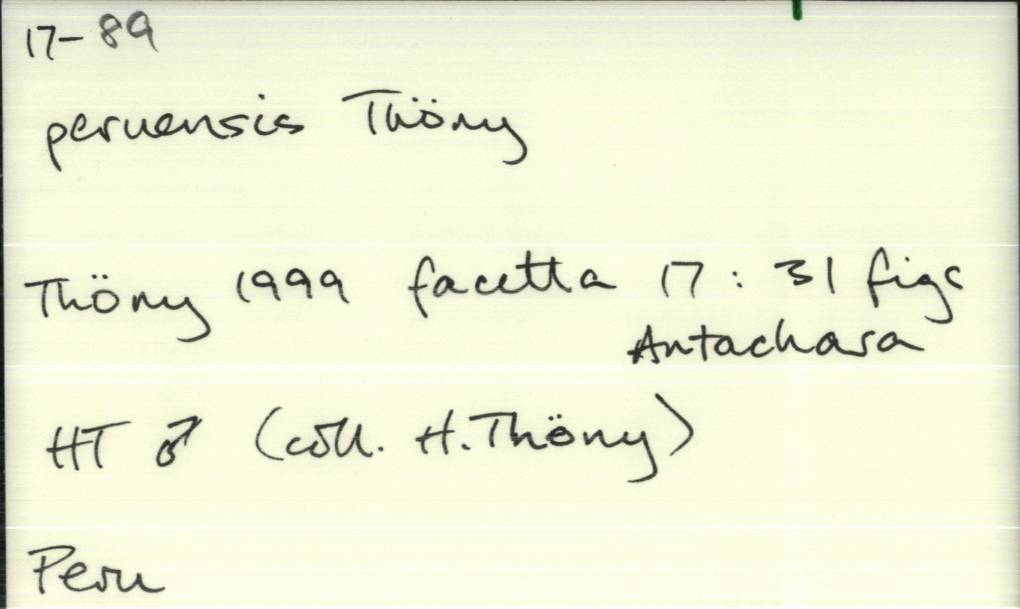 17-89
peruensis Thöny
Thöny 1999 facetta 17: 31 figs
Antachara
HT ♂ (coll. H. Thöny)
Peru